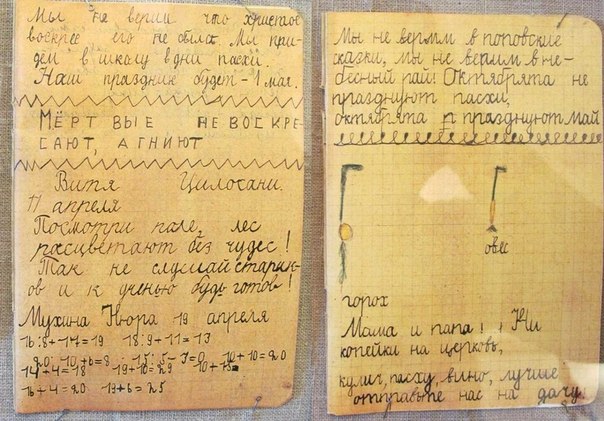 Мы не верим что христос
воскрес его не было. Мы при-
дём в школу в дни пасхи.
Наш праздник будет - 1 мая.
МЁРТ ВЫЕ НЕ ВОСКРЕ-
САЮТ, А ГНИЮТ
Витя Цилосани.
17 апреля
Посмотри поле, лес
расцветают без чудес!
Так не слушай старик-
ов и к ученью будь готов!
Мухина Нюра 19 апреля
16:8+17=19 18:9+11=13
14+4=18 19+10=29
16+4=20 19+6=25
Мы не верим в поповские
сказки, мы не верим в не-
бесный рай! Октябрята не
празднуют пасхи,
октябрята празднуют май
овес
горох
Мама и папа! Ни
копейки на церковь,
кулич, пасху, вино, лучше
отправьте нас на дачу.